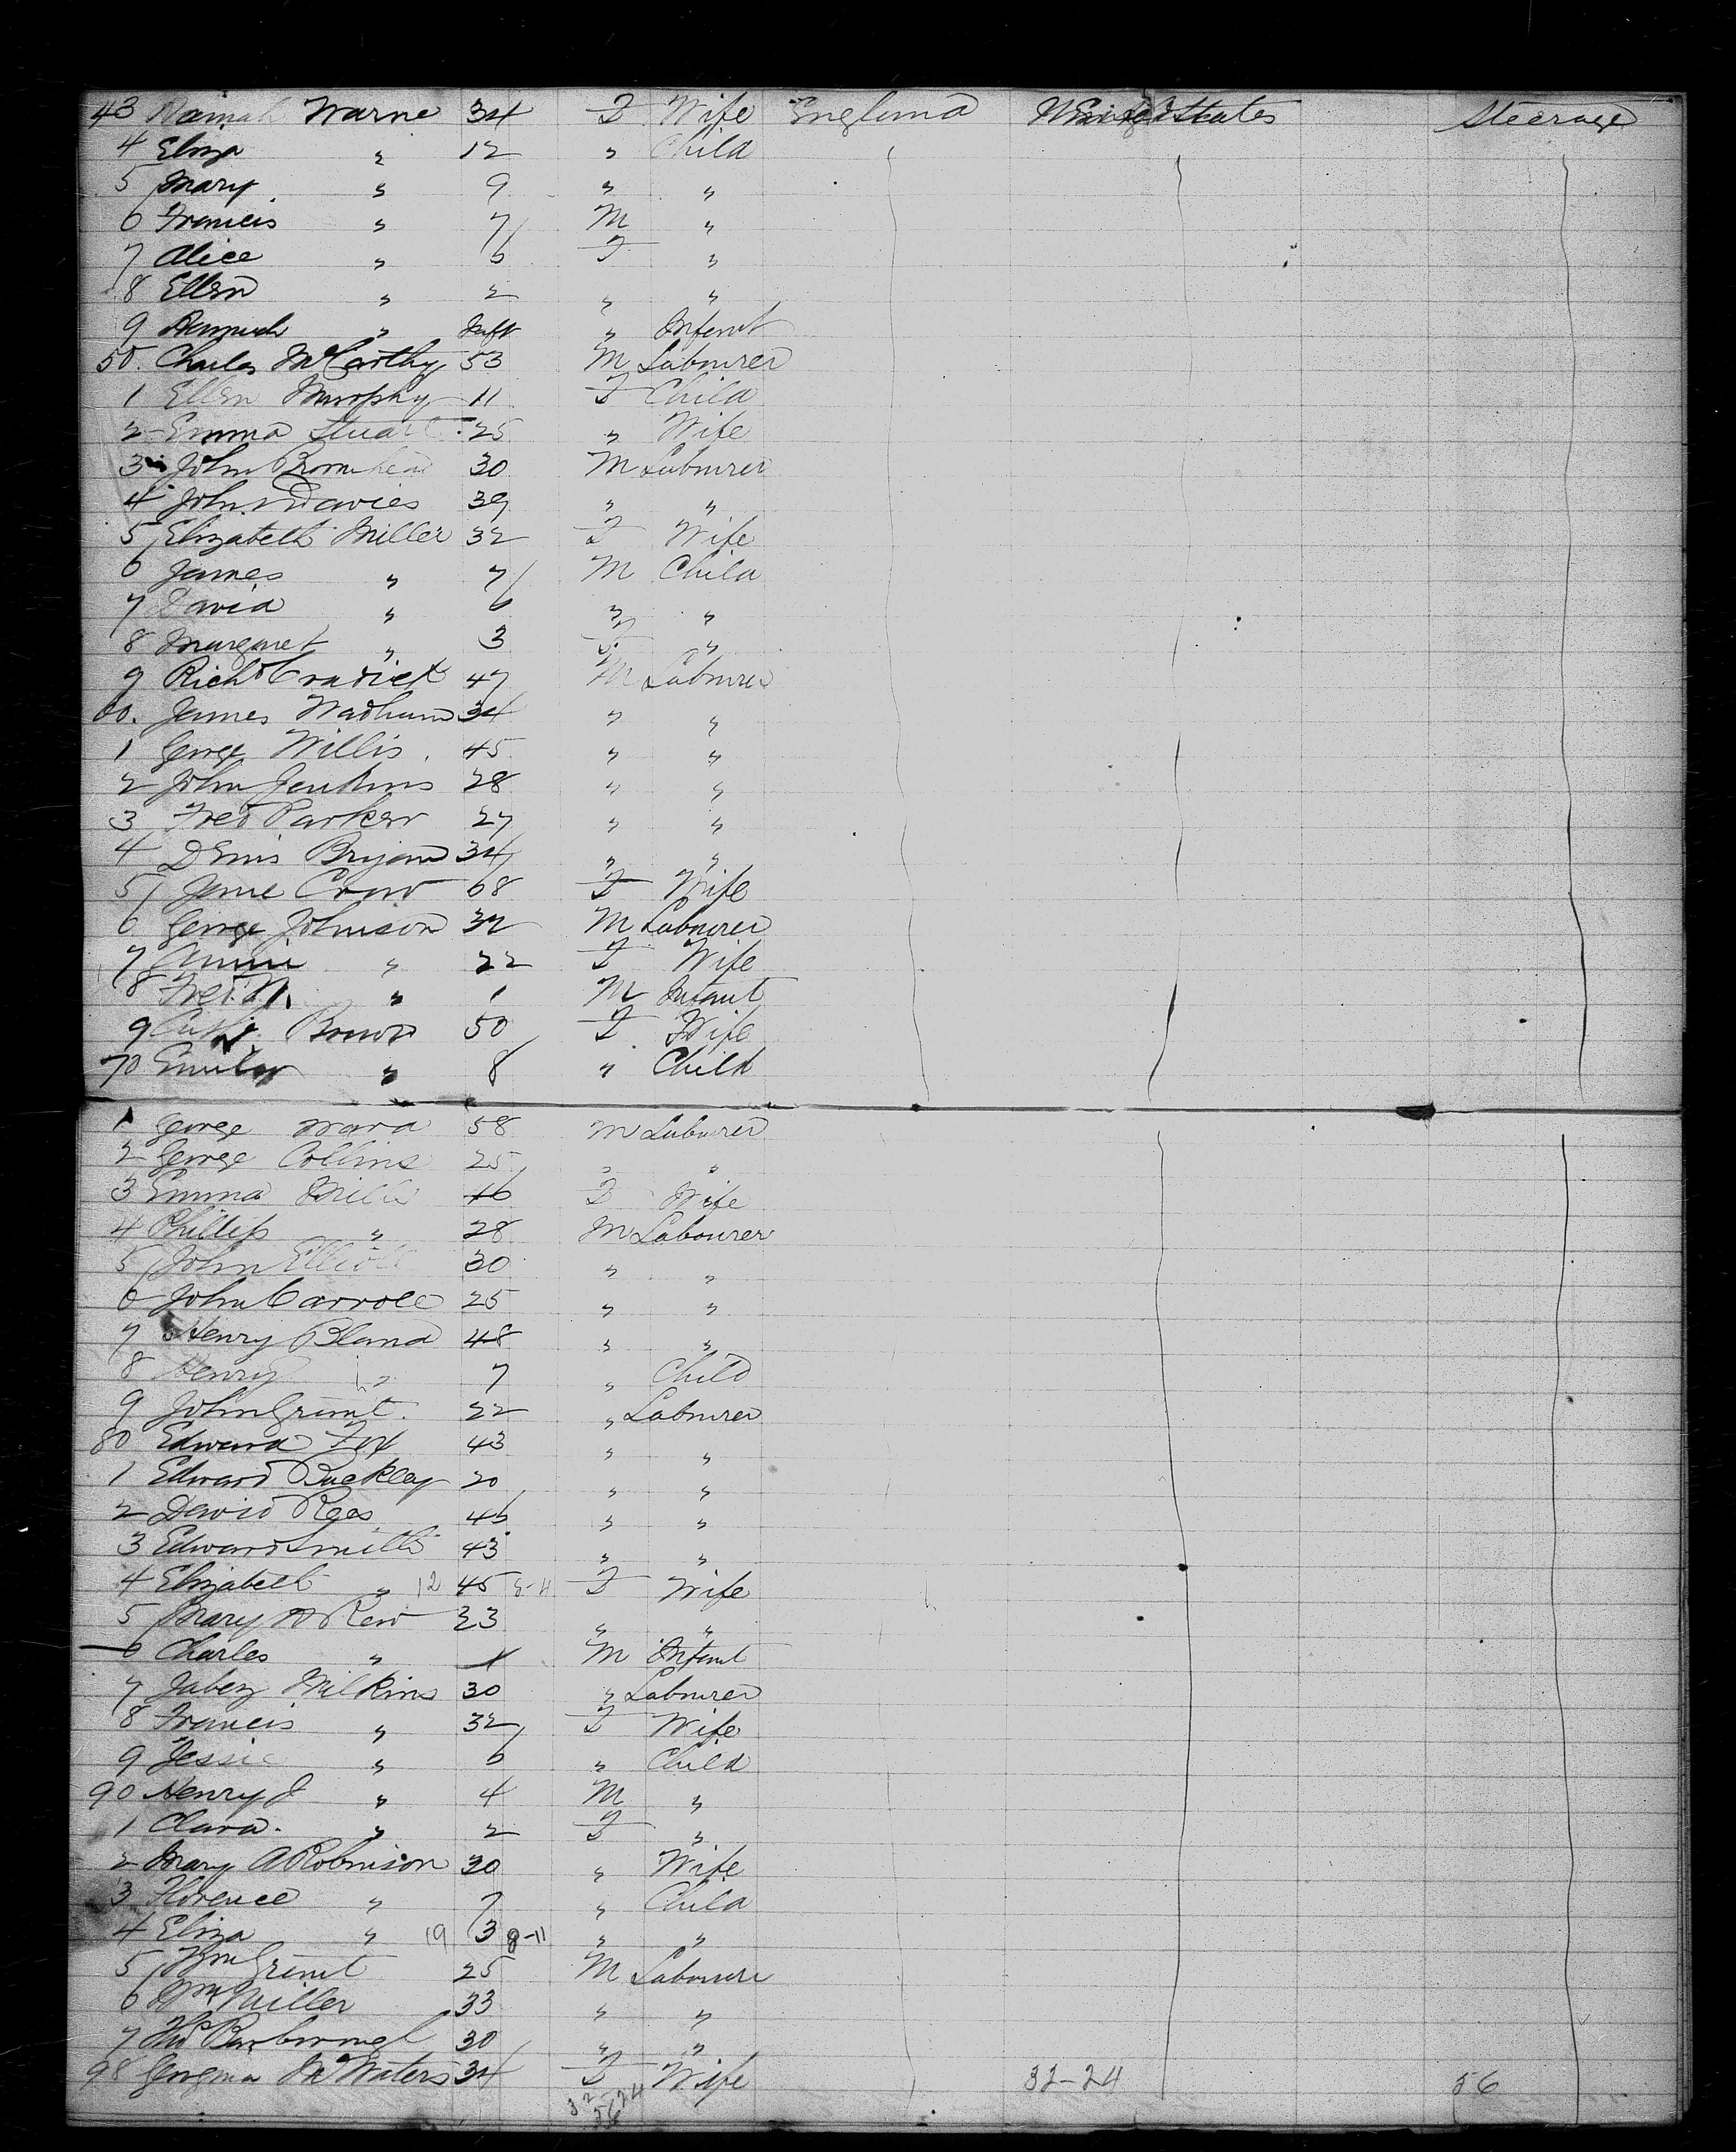 43 Hannah Warne 34 F Wife England United States Steerage
4 Eliza " 12 " Child
5 Mary " 9 " "
6 Francis " 7 M "
7 Alice " 6 F "
8 Ellen " 2 " "
9 Hannah " Inft " Infant
50. Charles McCarthy 53 M Labourer
1 Ellen Murphy 11 F Child
2 Emma Stuart 25 " Wife
3 John Bromhead 30 M Labourer
4 John Davies 39 " "
5 Elizabeth Miller 32 F Wife
6 James " 7 M Child
7 David " 6 " "
8 Margaret " 3 F "
9 Richd Cradick 47 M Labourer
60. James Wadham 34 " "
1 George Willis 45 " "
2 John Jenkins 28 " "
3 Fred Parker 27 " "
4 Denis Bryan 34 " "
5 Jane Crow 68 F Wife
6 George Johnson 32 M Labourer
7 Annie " 22 F Wife
8 Fred. " 1 M Infant
9 Brown 50 F Wife
70 Emily " 8 " Child
1 George Ward 58 M Labourer
2 George Collins 25 " "
3 Emma Mills 16 F Wife
4 Phillip " 28 M Labourer
5 John Elliott 30 " "
6 John Carroll 25 " "
7 Henry Bland 48 " "
8 Henry " 7 " Child
9 John Grant. 22 " Labourer
80 Edward Fox 43 " "
1 Edward Buckley 20 " "
2 David Rees 46 " "
3 Edward Smith 43 " "
4 Elizabeth " 12 45 8-11 F Wife
5 Mary A Rew 23 " "
6 Charles " 1 M Infant
7 Jabez Wilkins 30 " Labourer
8 Francis " 32 F Wife
9 Jessie " 6 " Child
90 Henry J " 4 M "
1 Clara. " 2 F "
2 Mary A Robinson 30 " Wife
3 Florence " 7 " Child
4 Eliza " 19 3 8-11 " "
5 Wm Grant 25 M Labourer
6 Wm Miller 33 " "
7 Thos 30 " "
98 Georgina McWaters 34 F Wife 32-24 56
32 24
56